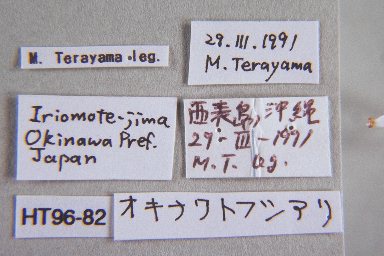 M. Terayama • leg.
29. III. 1991
M. Terayama
Iriomote-jima
Okinawa Pref.
Japan
西表島, 沖縄
29-III-1991
M. T. leg.
HT96-82
オキナワトフシアリ